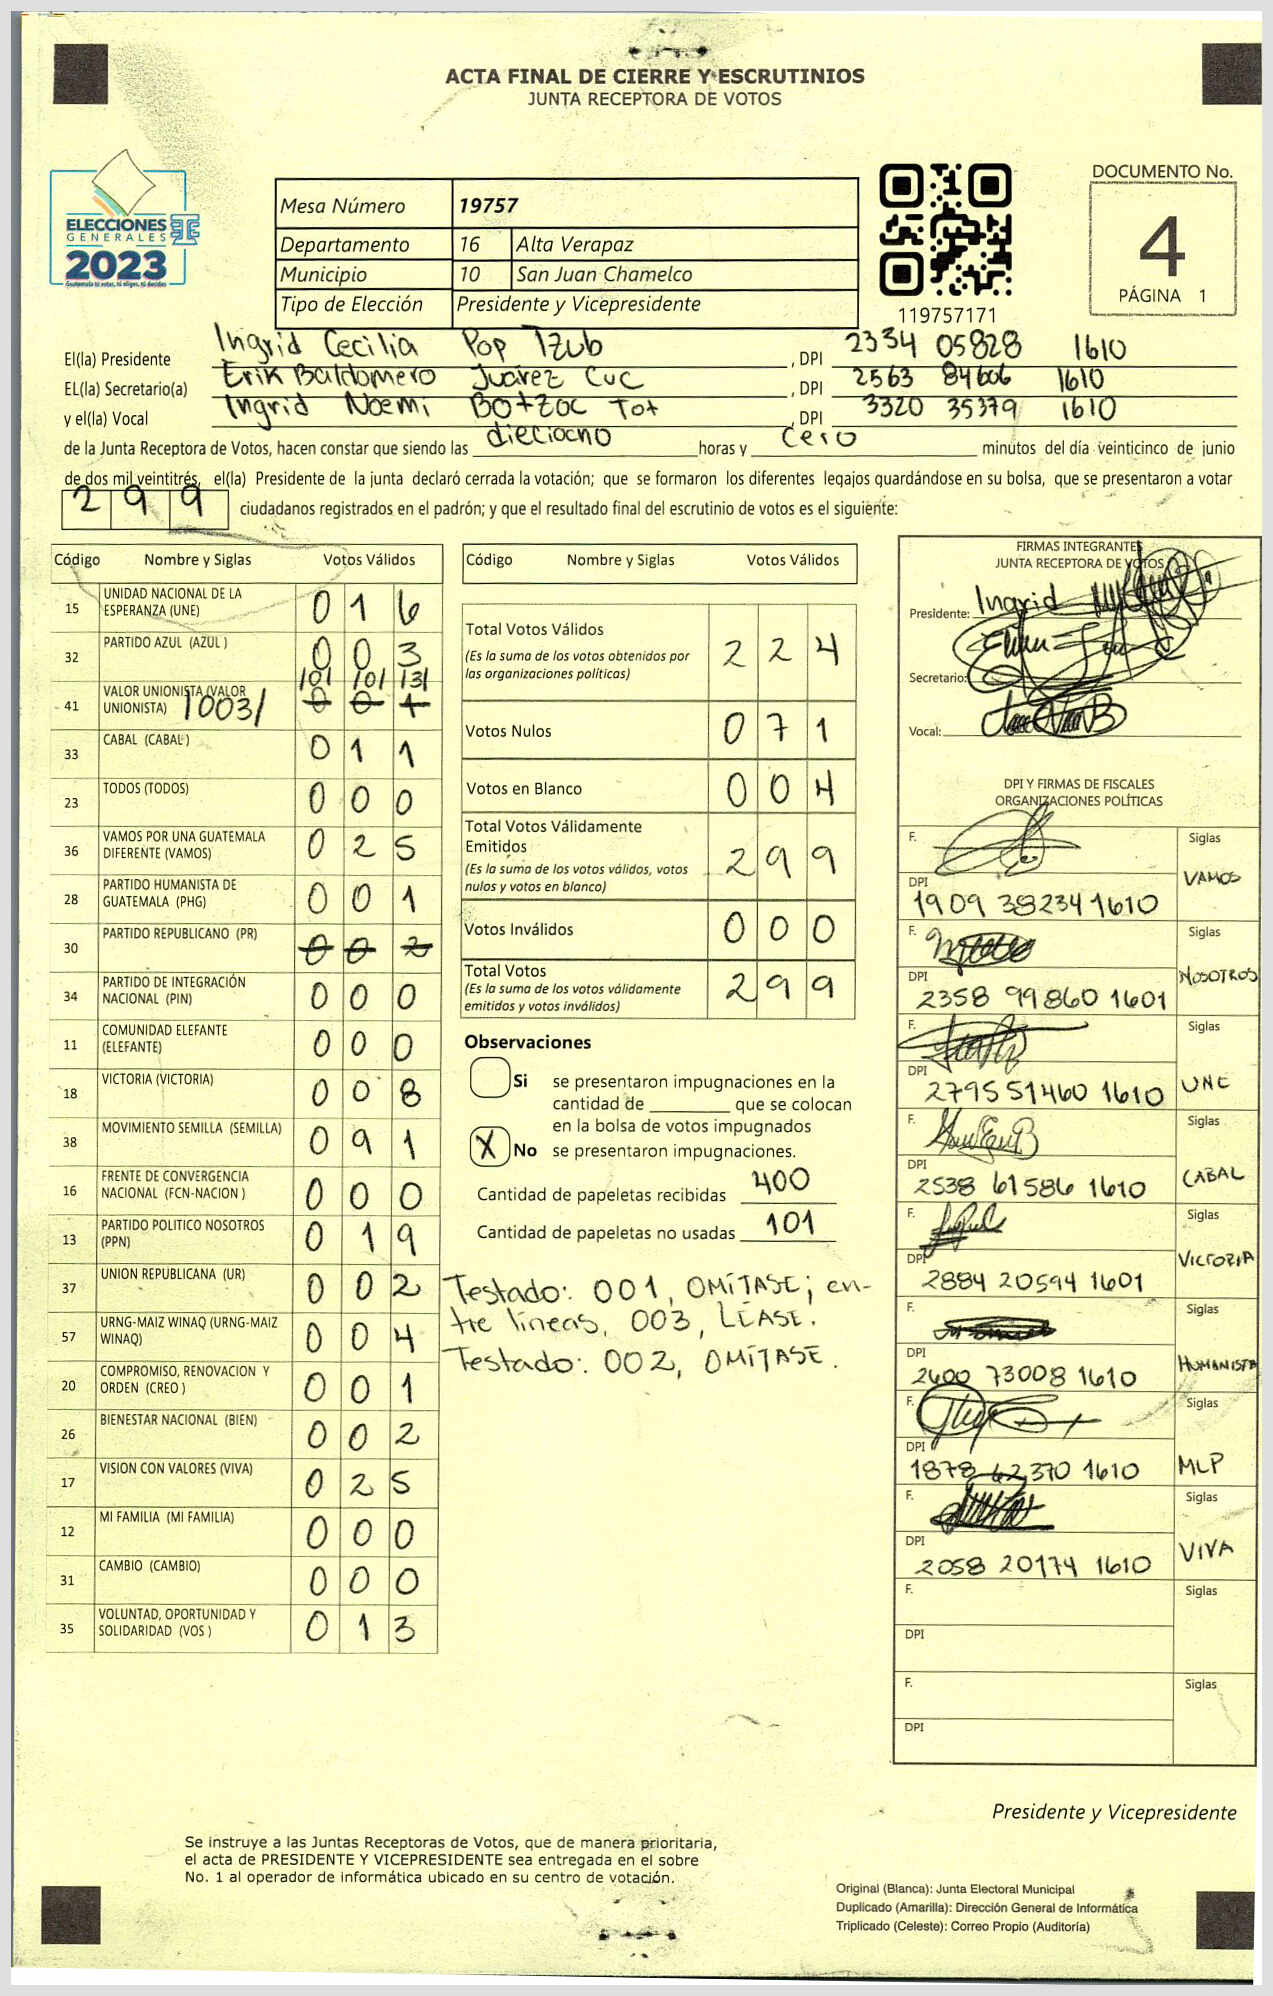 ACTA FINAL DE CIERRE Y ESCRUTINIOS
JUNTA RECEPTORA DE VOTOS
ELECCIONES
GENERALES
2023
Guatemala tú votas, tú eliges, tú decides
Mesa Número 19757
Departamento 16 Alta Verapaz
Municipio 10 San Juan Chamelco
Tipo de Elección Presidente y Vicepresidente
119757171
DOCUMENTO No.
4
PÁGINA 1
El(la) Presidente Ingrid Cecilia Pop Tzub , DPI 2334 05828 1610
EL(la) Secretario(a) Erik Baldomero Juárez Cuc , DPI 2563 84606 1610
y el(la) Vocal Ingrid Noemi Botzoc Tot , DPI 3320 35379 1610
de la Junta Receptora de Votos, hacen constar que siendo las dieciocho horas y cero minutos del día veinticinco de junio
de dos mil veintitrés, el(la) Presidente de la junta declaró cerrada la votación; que se formaron los diferentes legajos guardándose en su bolsa, que se presentaron a votar
299 ciudadanos registrados en el padrón; y que el resultado final del escrutinio de votos es el siguiente:
Código Nombre y Siglas Votos Válidos
15 UNIDAD NACIONAL DE LA ESPERANZA (UNE) 0 1 6
32 PARTIDO AZUL (AZUL ) 0 0 3
/0/ /0/ /3/
41 VALOR UNIONISTA (VALOR UNIONISTA) /003/ 0 0 1
33 CABAL (CABAL ) 0 1 1
23 TODOS (TODOS) 0 0 0
36 VAMOS POR UNA GUATEMALA DIFERENTE (VAMOS) 0 2 5
28 PARTIDO HUMANISTA DE GUATEMALA (PHG) 0 0 1
30 PARTIDO REPUBLICANO (PR) 0 0 2
34 PARTIDO DE INTEGRACIÓN NACIONAL (PIN) 0 0 0
11 COMUNIDAD ELEFANTE (ELEFANTE) 0 0 0
18 VICTORIA (VICTORIA) 0 0 8
38 MOVIMIENTO SEMILLA (SEMILLA) 0 9 1
16 FRENTE DE CONVERGENCIA NACIONAL (FCN-NACION ) 0 0 0
13 PARTIDO POLITICO NOSOTROS (PPN) 0 1 9
37 UNION REPUBLICANA (UR) 0 0 2
57 URNG-MAIZ WINAQ (URNG-MAIZ WINAQ) 0 0 4
20 COMPROMISO, RENOVACION Y ORDEN (CREO ) 0 0 1
26 BIENESTAR NACIONAL (BIEN) 0 0 2
17 VISION CON VALORES (VIVA) 0 2 5
12 MI FAMILIA (MI FAMILIA) 0 0 0
31 CAMBIO (CAMBIO) 0 0 0
35 VOLUNTAD, OPORTUNIDAD Y SOLIDARIDAD (VOS ) 0 1 3
Código Nombre y Siglas Votos Válidos
Total Votos Válidos 2 2 4
(Es la suma de los votos obtenidos por
las organizaciones políticas)
Votos Nulos 0 7 1
Votos en Blanco 0 0 4
Total Votos Válidamente
Emitidos 2 9 9
(Es la suma de los votos válidos, votos
nulos y votos en blanco)
Votos Inválidos 0 0 0
Total Votos 2 9 9
(Es la suma de los votos válidamente
emitidos y votos inválidos)
Observaciones
Si se presentaron impugnaciones en la
cantidad de ________ que se colocan
en la bolsa de votos impugnados
X No se presentaron impugnaciones.
Cantidad de papeletas recibidas 400
Cantidad de papeletas no usadas 101
Testado: 001, OMÍTASE; en-
tre líneas, 003, LÉASE.
Testado: 002, OMÍTASE.
FIRMAS INTEGRANTES
JUNTA RECEPTORA DE VOTOS
Presidente: Ingrid
Secretario:
Vocal:
DPI Y FIRMAS DE FISCALES
ORGANIZACIONES POLÍTICAS
F. Siglas
DPI 1909 38234 1610 VAMOS
F. Siglas
DPI 2358 99860 1601 NOSOTROS
F. Siglas
DPI 2795 51460 1610 UNE
F. Siglas
DPI 2538 61586 1610 CABAL
F. Siglas
DPI 2884 20594 1601 VICTORIA
F. Siglas
DPI 2600 73008 1610 HUMANISTA
F. Siglas
DPI 1878 62370 1610 MLP
F. Siglas
DPI 2058 20174 1610 VIVA
F. Siglas
DPI
F. Siglas
DPI
Presidente y Vicepresidente
Se instruye a las Juntas Receptoras de Votos, que de manera prioritaria,
el acta de PRESIDENTE Y VICEPRESIDENTE sea entregada en el sobre
No. 1 al operador de informática ubicado en su centro de votación.
Original (Blanca): Junta Electoral Municipal
Duplicado (Amarilla): Dirección General de Informática
Triplicado (Celeste): Correo Propio (Auditoría)